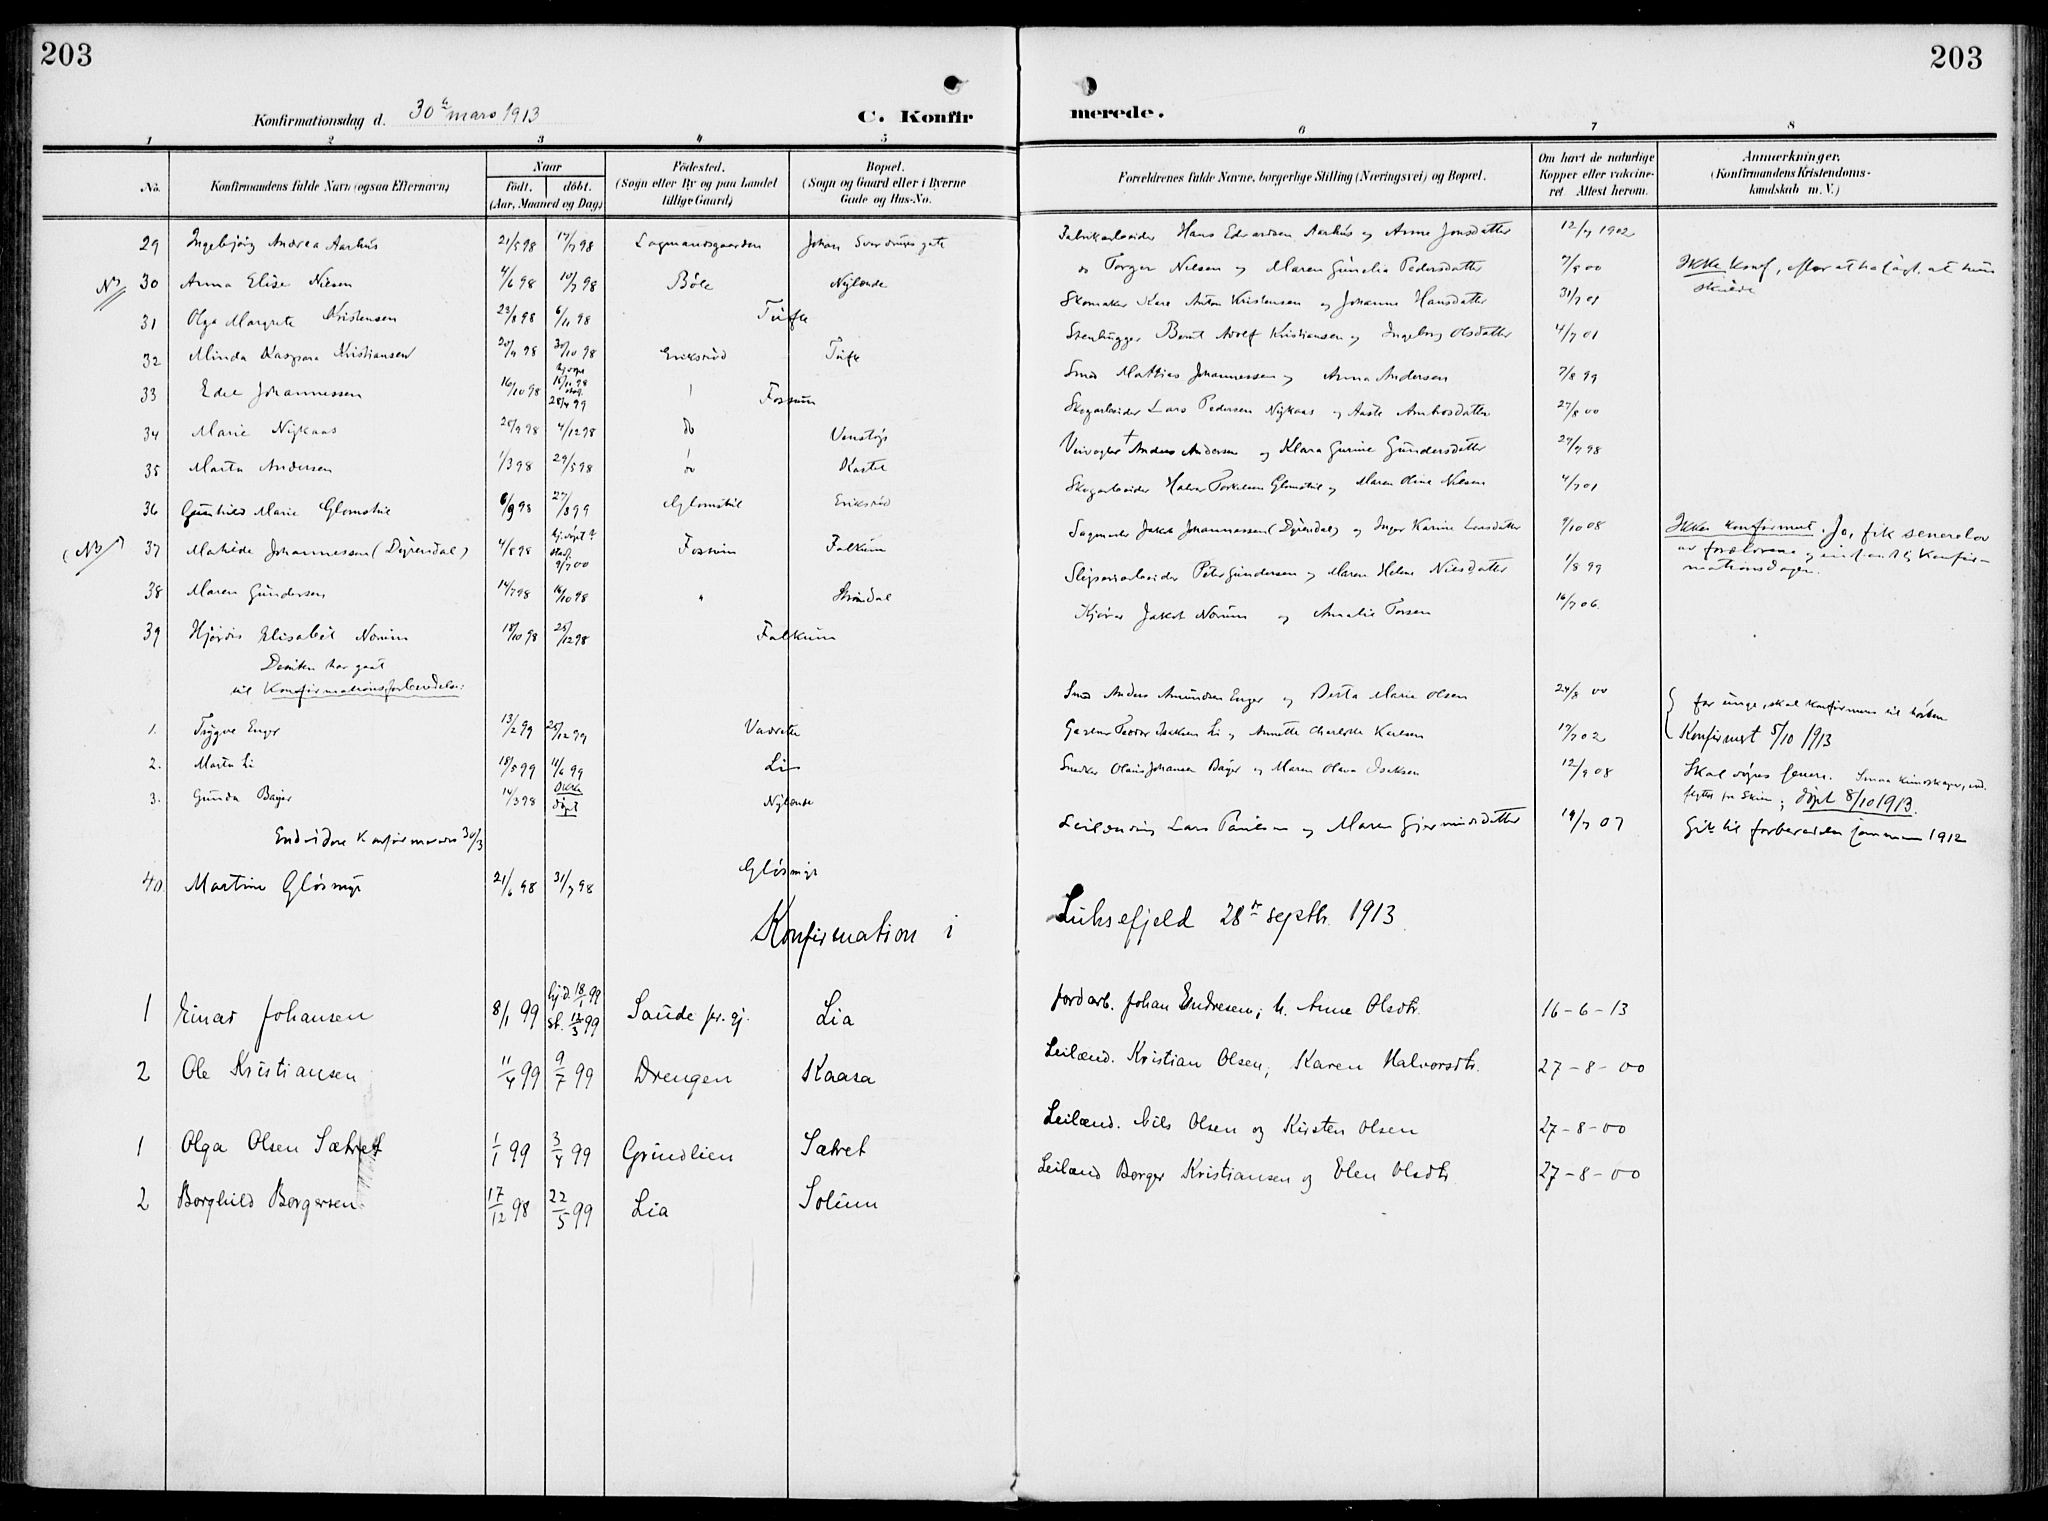 203
203
Konfirmationsdag d. 30te mars 1913
C. Konfirmerede.
1 2 3 4 5 6 7 8
No. Konfirmandens fulde Navn (ogsaa Efternavn) Naar Födested. Bopæl. Forældrenes fulde Navne, borgerlige Stilling (Næringsvei) og Bopæl. Om havt de naturlige Anmærkninger,
födt. döbt. (Sogn eller By og paa Landet (Sogn og Gaard eller i Byerne Kopper eller vakcine- (Konfirmandens Kristendoms-
(Aar, Maaned og Dag) tillige Gaard) Gade og Hus-No. ret Attest herom. kundskab m. V.)
29 Ingebjörg Andrea Aarhus 21/5 98 17/7 98 Lagmandsgaarden Johan Sverdrups gate Fabrikarbeider Hans Edvardsen Aarhus og Anne Jonsdatter 12/7 1902
NB 30 Anna Elise Nilsen 4/6 98 10/7 98 Böle Nylende do Torger Nilsen og Maren Gunelia Pedersdatter 7/9 00 Ikke konf, efter at ha sagt, at hun skulde
31 Olga Margrete Kristensen 23/8 98 6/11 98 Tufte Skomaker Kare Anton Kristensen og Johanne Hansdatter 31/7 01
32 Minda Kaspara Kristiansen 20/9 98 30/10 98 Eriksröd Tufte Stenhugger Bernt Adolf Kristiansen og Ingeborg Olsdatter 4/7 01
33 Edel Johannessen 16/10 98 hj.döpt 18/11 98 stad. 28/4 99 Fossum Smed Mathias Johannessen og Anna Andersen 7/8 99
34 Marie Nykaas 28/9 98 4/12 98 do Venstöp Skogarbeider Lars Pedersen Nykaas og Aaste Ambrosdatter 27/8 00
35 Marta Andersen 1/3 98 29/5 98 do Kastet Veivogter † Anders Andersen og Klara Gurine Gundersdatter 27/7 98
36 Gunhild Marie Glomstul 6/9 98 27/8 99 Glomstul Eriksröd Skogarbeider Halvor Torkelsen Glomstul og Maren Oline Nilsen 4/7 01
(NB) 37 Matilde Johannessen (Dyrendal) 4/8 98 hj.döpt ? stad. 9/7 00 Fossum Falkum Sagmester Jakob Johannessen (Dyrendal) og Inger Karine Larsdatter 9/10 08 Ikke konfirmert. Jo, fik senere lov
av forældrene og indfandt sig Konfir-
mationsdagen.
38 Maren Gundersen 14/7 98 16/10 98 " Strömdal Sliperiarbeider Peter Gundersen og Maren Helene Nilsdatter 1/8 99
39 Hjördis Elisabet Norum 18/10 98 28/12 98 Falkum Kjörer Jakob Norum og Amalie Torsen 16/7 06.
Desuten har gaat
til Konfirmationsforberedelse:
1. Trygve Enger 13/2 99 25/12 99 Vadrette Smed Anders Amundsen Enger og Berta Marie Olsen 24/8 00 for unge, skal konfirmeres til hösten
2. Marta Li 18/5 99 11/6 99 Li Garver Teodor Isaksen Li og Annette Charlotte Karlsen 17/7 02 Konfirmert 5/10 1913
3. Gunda Bøyer 14/3 98 Ikke döpt Nylende Snedker Olaus Johansen Bøyer og Maren Olava Isaksen 12/9 08 Skal döpes senere. Smaa kundskaper, ind-
flyttet fra Skien; döpt 8/10 1913.
Endvidere Konfirmeredes 30/3
40. Martine Glösmyr 21/6 98 31/7 98 Glösmyr Leilænding Lars Paulsen og Maren Gjermundsdatter 19/7 07 Gik til forberedelse sommeren 1912
Konfirmation i Luksefjeld 28de septbr. 1913.
1 Einar Johansen 8/1 99 hjd. 18/1 99 st. 12/3 99 Saude pr.gj. Lia Jordarb. Johan Endresen, h. Anne Olsdtr. 16-6-13
2 Ole Kristiansen 11/4 99 9/7 99 Drengen Kaasa Leilænd. Kristian Olsen, Karen Halvorsdtr. 27-8-00
1 Olga Olsen Sætret 1/1 99 3/4 99 Grindlien Sætret Leilænd. Nils Olsen og Kirsten Olsen 27-8-00
2 Borghild Borgersen 17/12 98 22/5 99 Lia Solum Leilænd Borger Kristiansen og Elen Olsdtr. 27-8-00